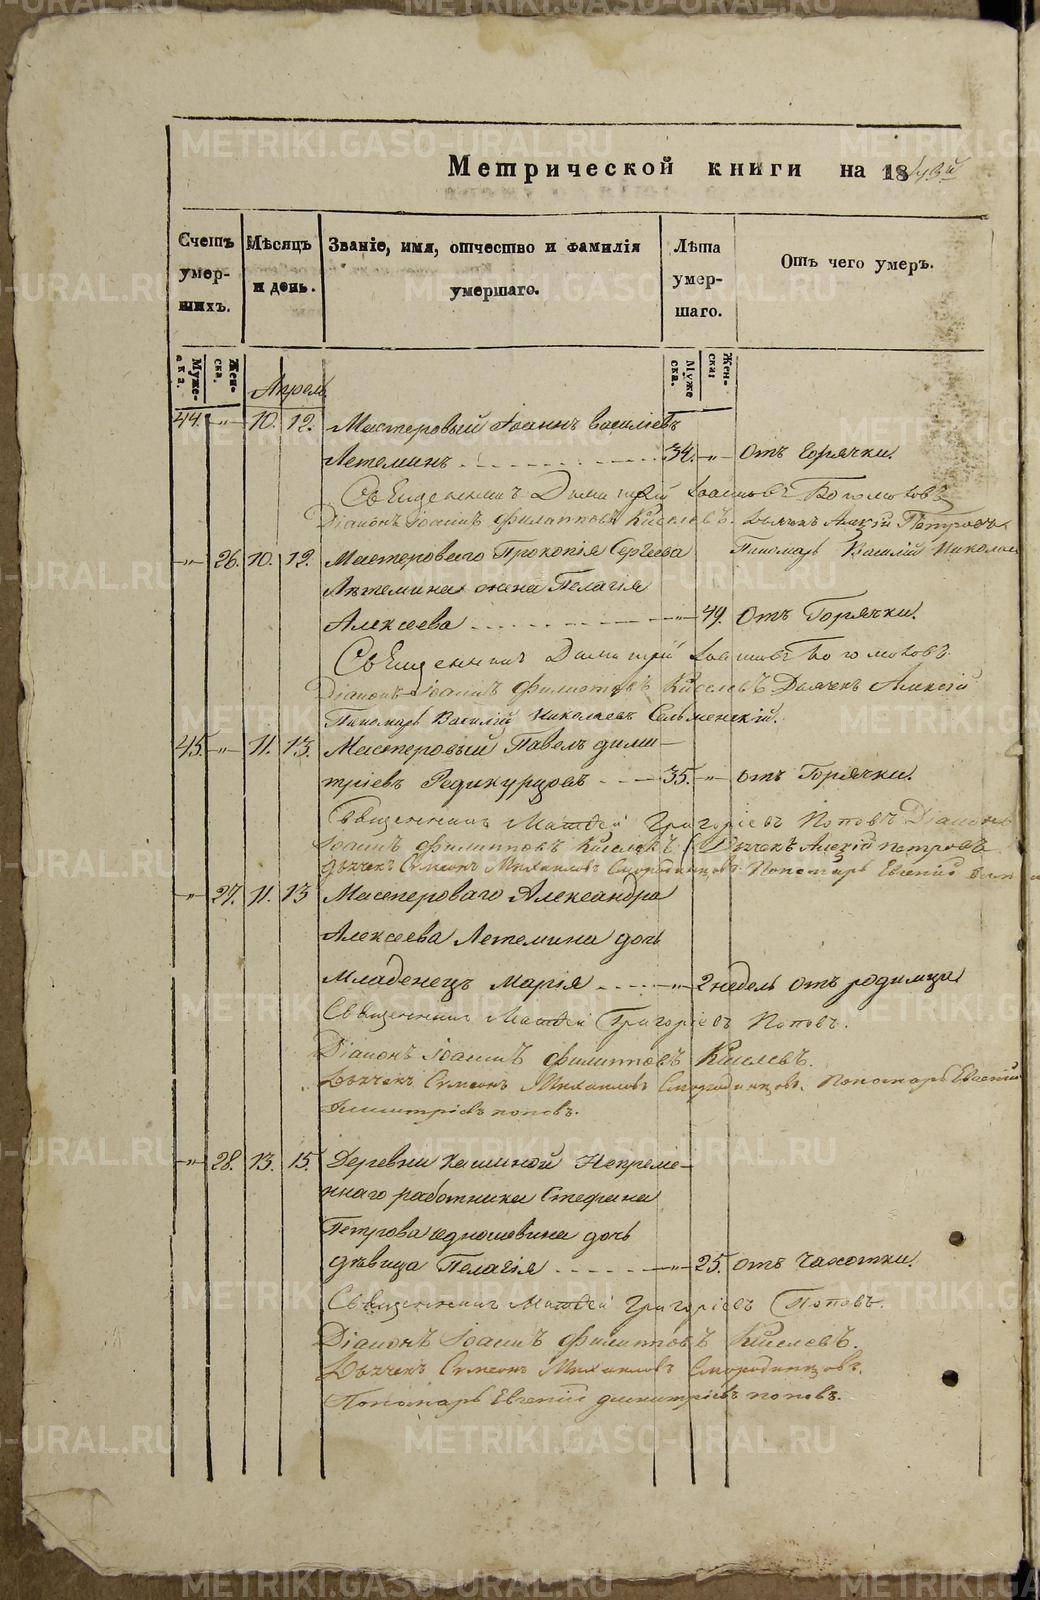 Метрической книги на 1843й
Счетъ умершихъ.
Мѣсяцъ и день.
Званіе, имя, отчество и фамилія умершаго.
Лѣта умершаго.
Отъ чего умеръ.
Мужеска.
Женска.
Мужеска.
Женска.
Апрель
44. —"— 10. 12. Мастеровый Іоаннъ Василіевъ
Летеминъ 34. —"— Отъ Горячки.
Священникъ Димитрій Іоанновъ Богомоловъ
Діаконъ Іоаннъ Филипповъ Киселевъ. Дьячекъ Алексій Петровъ
Пономарь Василій Николаевъ
—"— 26. 10. 12. Мастероваго Прокопія Сергеева
Летемина жена Пелагія
Алексеева —"— 49. Отъ Горячки.
Священникъ Димитрій Іоанновъ Богомоловъ.
Діаконъ Іоаннъ Филипповъ Киселевъ Дьячекъ Алексій
Пономарь Василій Николаевъ Сельменскій.
45. —"— 11. 13. Мастеровый Павелъ Дими-
тріевъ Редикурцовъ 35. —"— отъ Горячки.
Священникъ Матфей Григоріевъ Поповъ Діаконъ
Іоаннъ Филипповъ Киселевъ Дьячекъ Алексій Петровъ
Дьячекъ Сумеонъ Михаиловъ Смородинцовъ. Пономарь Евгений
—"— 27. 11. 13 Мастероваго Александра
Алексеева Летемина дочь
Младенецъ Марія —"— 2 недель отъ родимца
Священникъ Матфей Григоріевъ Поповъ.
Діаконъ Іоаннъ Филипповъ Киселевъ.
Дьячекъ Сумеонъ Михаиловъ Смородинцовъ. Пономарь Евгений
Димитріевъ поповъ.
—"— 28. 13. 15. Деревни Кашиной Непреме-
ннаго работника Стефана
Петрова дочь
девица Пелагія —"— 25. отъ Чахотки.
Священникъ Матфей Григоріевъ Поповъ.
Діаконъ Іоаннъ Филипповъ Киселевъ.
Дьячекъ Сумеонъ Михаиловъ Смородинцовъ.
Пономарь Евгений димитріевъ поповъ.
METRIKI.GASO-URAL.RU